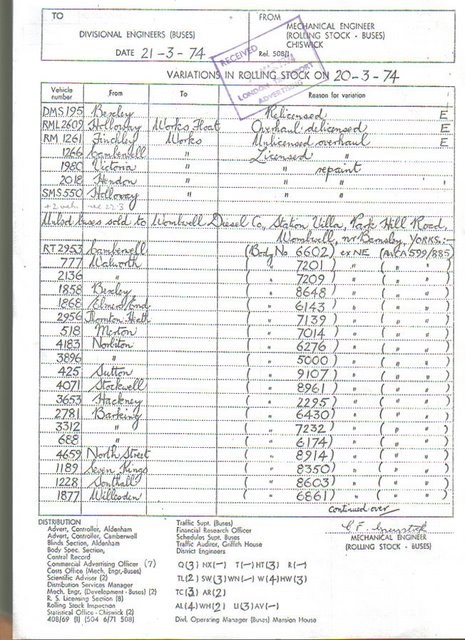 TO
DIVISIONAL ENGINEERS (BUSES)
DATE 21-3-74
FROM
MECHANICAL ENGINEER
(ROLLING STOCK - BUSES)
CHISWICK
Ref. 508/1
RECEIVED
LONDON TRANSPORT
ADVERTISING
VARIATIONS IN ROLLING STOCK ON 20-3-74
Vehicle number From To Reason for variation
DMS 195 Bexley Relicensed E
RML 2609 Holloway Works Float Overhaul delicensed E
RM 1261 Finchley Works Unlicensed overhaul E
1266 Camberwell " Licensed "
1980 Victoria " " repaint
2018 Hendon " " "
SMS 550 Holloway " " "
Unlsd buses sold to Wombwell Diesel Co, Station Villa, Park Hill Road,
Wombwell, nr Barnsley, YORKS:-
RT 2953 Camberwell (Body No 6602) ex NE (A/CA 599/885)
777 Walworth ( " 7201 ) " ( " " )
2136 " ( " 7209 ) " ( " " )
1858 Bexley ( " 8648 ) " ( " " )
1868 Elmers End ( " 6143 ) " ( " " )
2956 Thornton Heath ( " 7139 ) " ( " " )
518 Merton ( " 7014 ) " ( " " )
4183 Norbiton ( " 6276 ) " ( " " )
3896 " ( " 5000 ) " ( " " )
425 Sutton ( " 9107 ) " ( " " )
4071 Stockwell ( " 8961 ) " ( " " )
3653 Hackney ( " 2295 ) " ( " " )
2781 Barking ( " 6430 ) " ( " " )
3312 " ( " 7232 ) " ( " " )
688 " ( " 6174 ) " ( " " )
4659 North Street ( " 8914 ) " ( " " )
1189 Seven Kings ( " 8350 ) " ( " " )
1228 Southall ( " 8603 ) " ( " " )
1877 Willesden ( " 6861 ) " ( " " )
continued over
DISTRIBUTION
Advert, Controller, Aldenham
Advert, Controller, Camberwell
Blinds Section, Aldenham
Body Spec. Section,
Control Record
Commercial Advertising Officer (7)
Costs Office (Mech. Engr,-Buses)
Scientific Adviser (2)
Distribution Services Manager
Mech. Engr, (Development - Buses) (2)
R. S. Licensing Section (8)
Rolling Stock Inspection
Statistical Office - Chiswick (2)
408/69 (I) (504 6/71 508)
Traffic Supt. (Buses)
Financial Research Officer
Schedules Supt. Buses
Traffic Auditor, Griffith House
District Engineers
Q(3) HX(-) T(-) HT(3) R(-)
TL(2) SW(3) WN(-) W(4) HW(3)
TC(3) AR(2)
AL(4) WH(2) LI(3) AV(-)
Divl. Operating Manager (Buses) Mansion House
MECHANICAL ENGINEER
(ROLLING STOCK - BUSES)